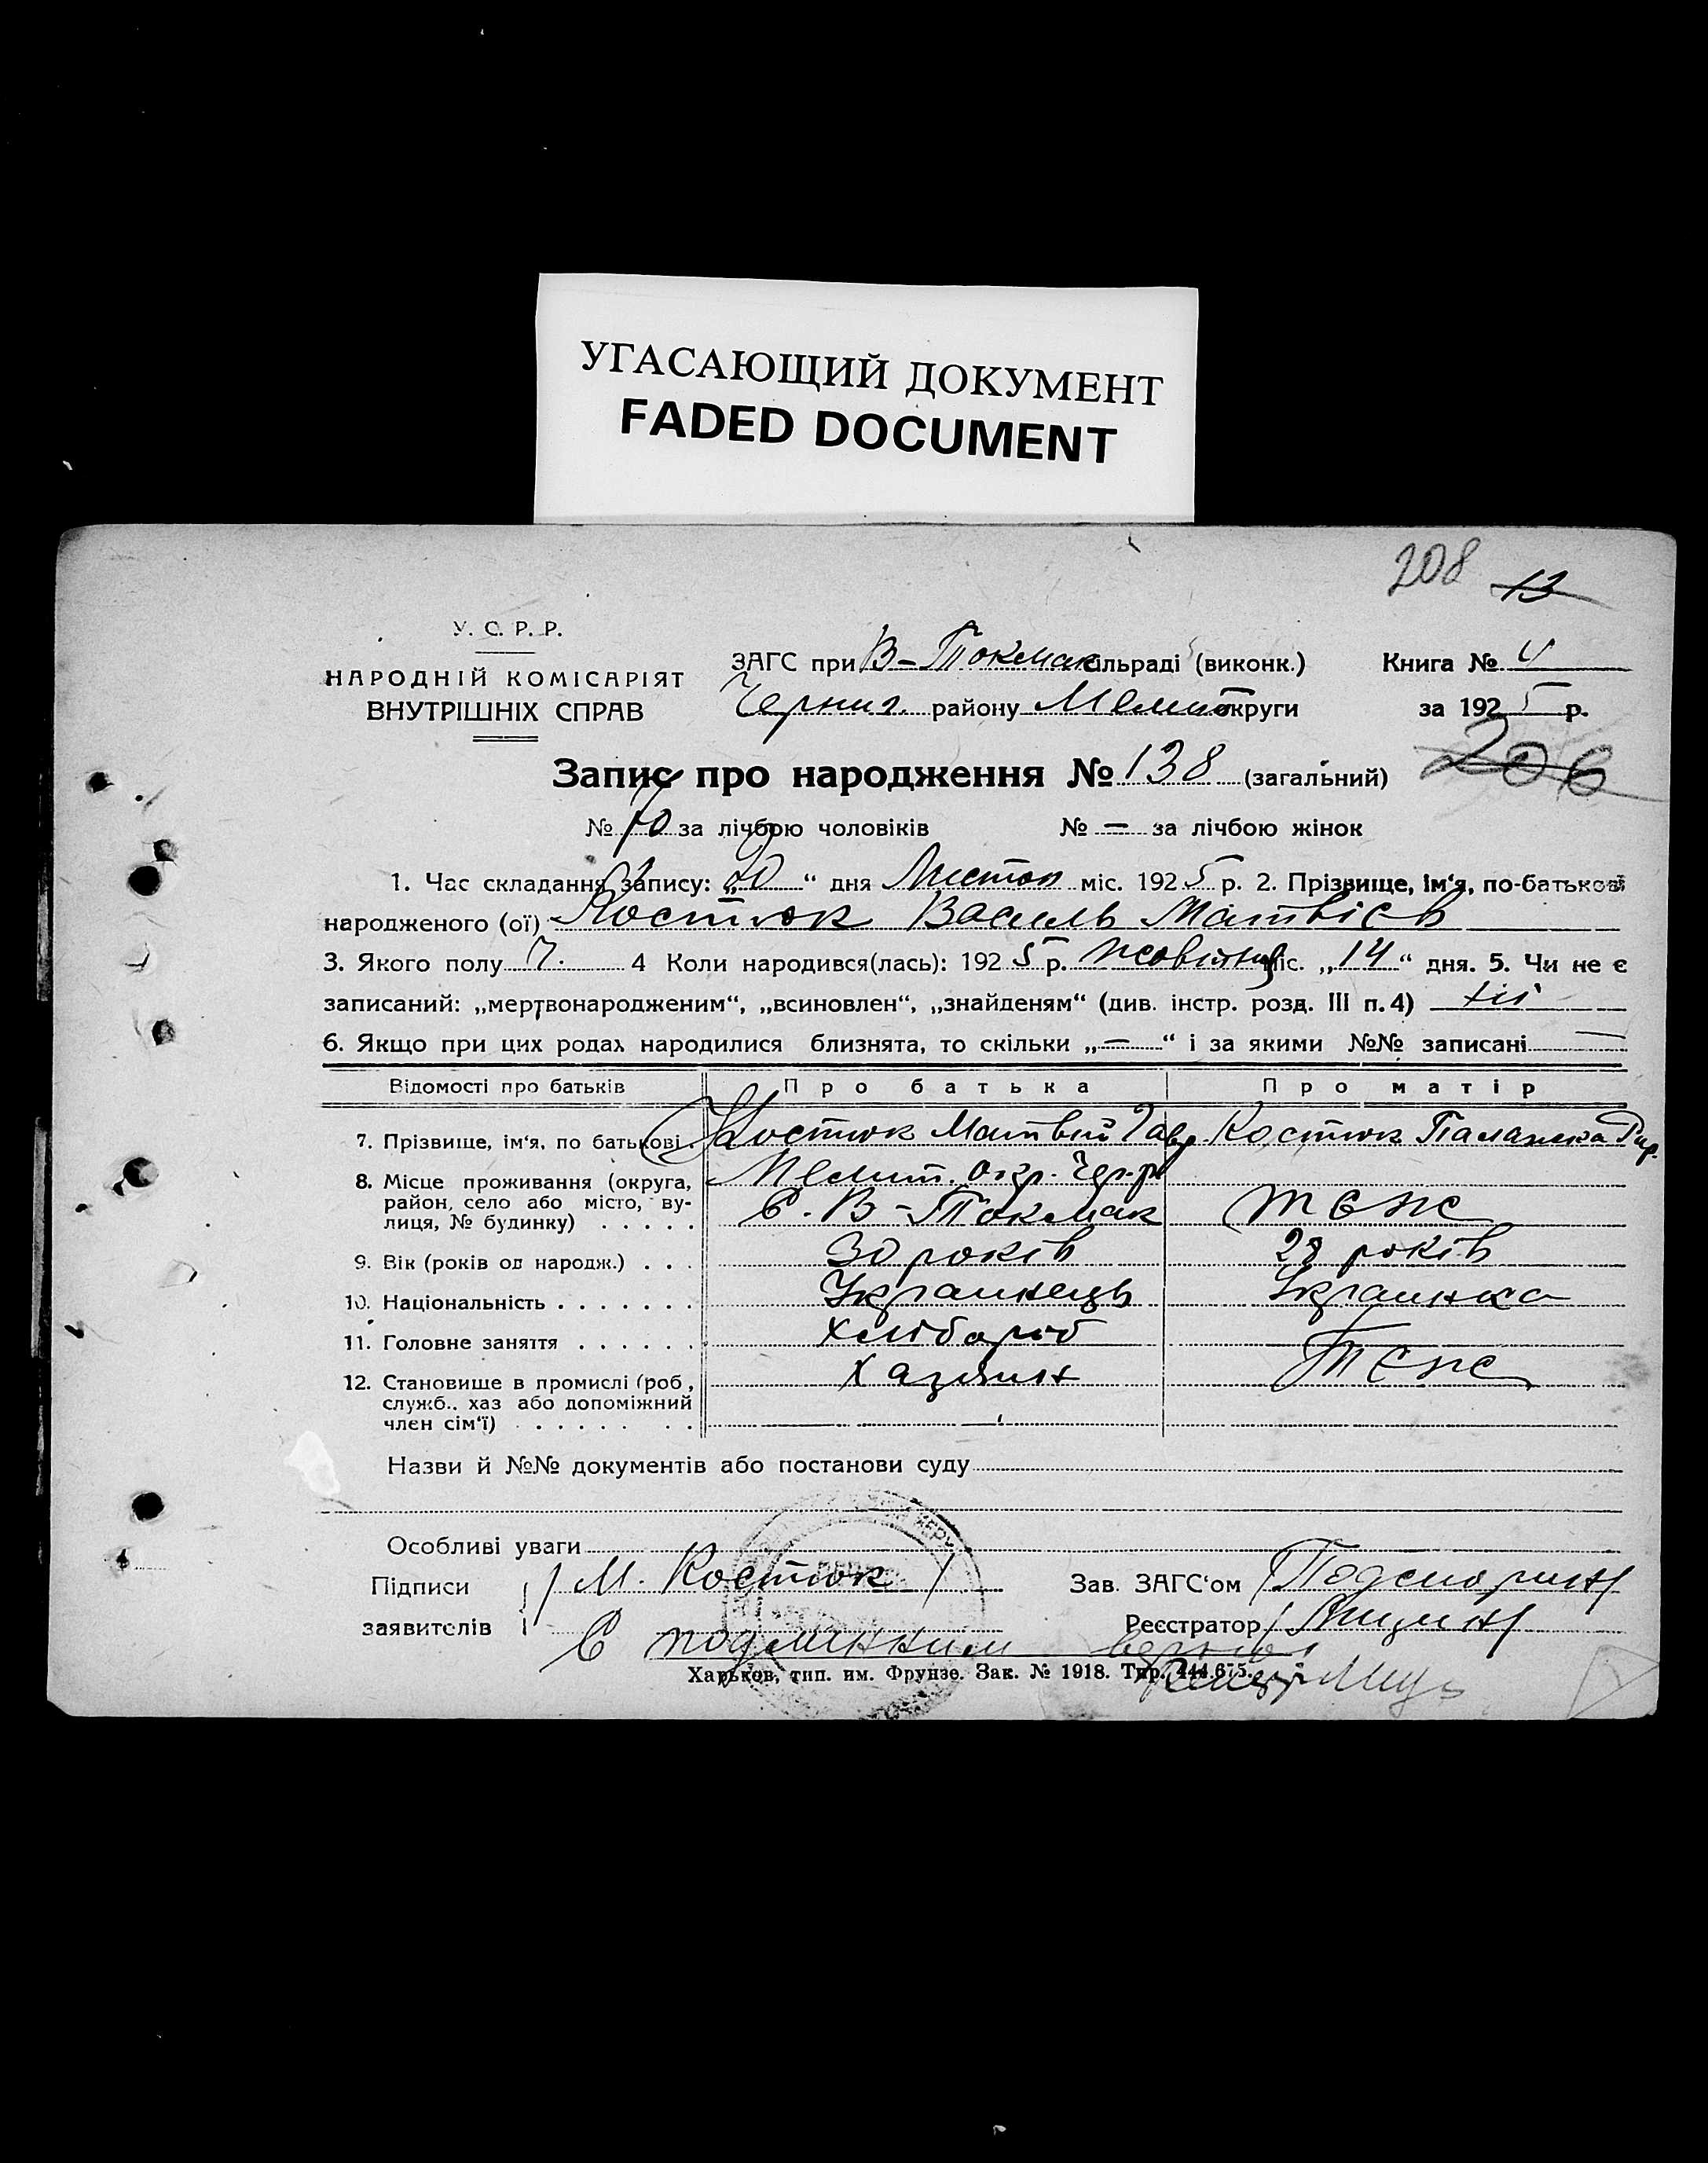 УГАСАЮЩИЙ ДОКУМЕНТ
FADED DOCUMENT
208 13
У. С. Р. Р.
НАРОДНІЙ КОМІСАРІЯТ
ВНУТРІШНІХ СПРАВ
ЗАГС при В-Токмак сільраді (виконк.) Книга № 4
Черниг. району Мелит округи за 1925 р.
Запис про народження № 138 (загальний) 206
№ 70 за лічбою чоловіків № — за лічбою жінок
1. Час складання запису: „20“ дня Листоп міс. 1925 р. 2. Прізвище, ім'я, по-батькові
народженого (ої) Костюк Василь Матвієв
3. Якого полу Ч. 4 Коли народився(лась): 1925 р. жовтня міс. „14“ дня. 5. Чи не є
записаний: „мертвонародженим“, „всиновлен“, „знайденям“ (див. інстр. розд. III п. 4) ні
6. Якщо при цих родах народилися близнята, то скільки „—“ і за якими №№ записані —
Відомості про батьків Про батька Про матір
7. Прізвище, ім'я, по батькові. Костюк Матвій Гавр Костюк Палажка
8. Місце проживання (округа, район, село або місто, вулиця, № будинку) Мелит. окр. Чер-р
С. В-Токмак теж
9. Вік (років од народж.) 30 років 28 років
10. Національність Украинець Украинка
11. Головне заняття Хлібороб
12. Становище в промислі (роб, служб., хаз або допоміжний член сім'ї) Хазяин Теж
Назви й №№ документів або постанови суду
Особливі уваги
Підписи заявителів М. Костюк Зав. ЗАГС'ом
Реєстратор
С подлинним верно
Харьков, тип. им. Фрунзе. Зак. № 1918. Тир. 444.675.